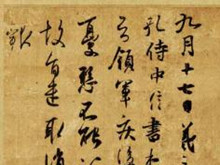 九月十七日羲之
孔侍中信書想
領軍疾後
憂懸不能
故旨遣取消